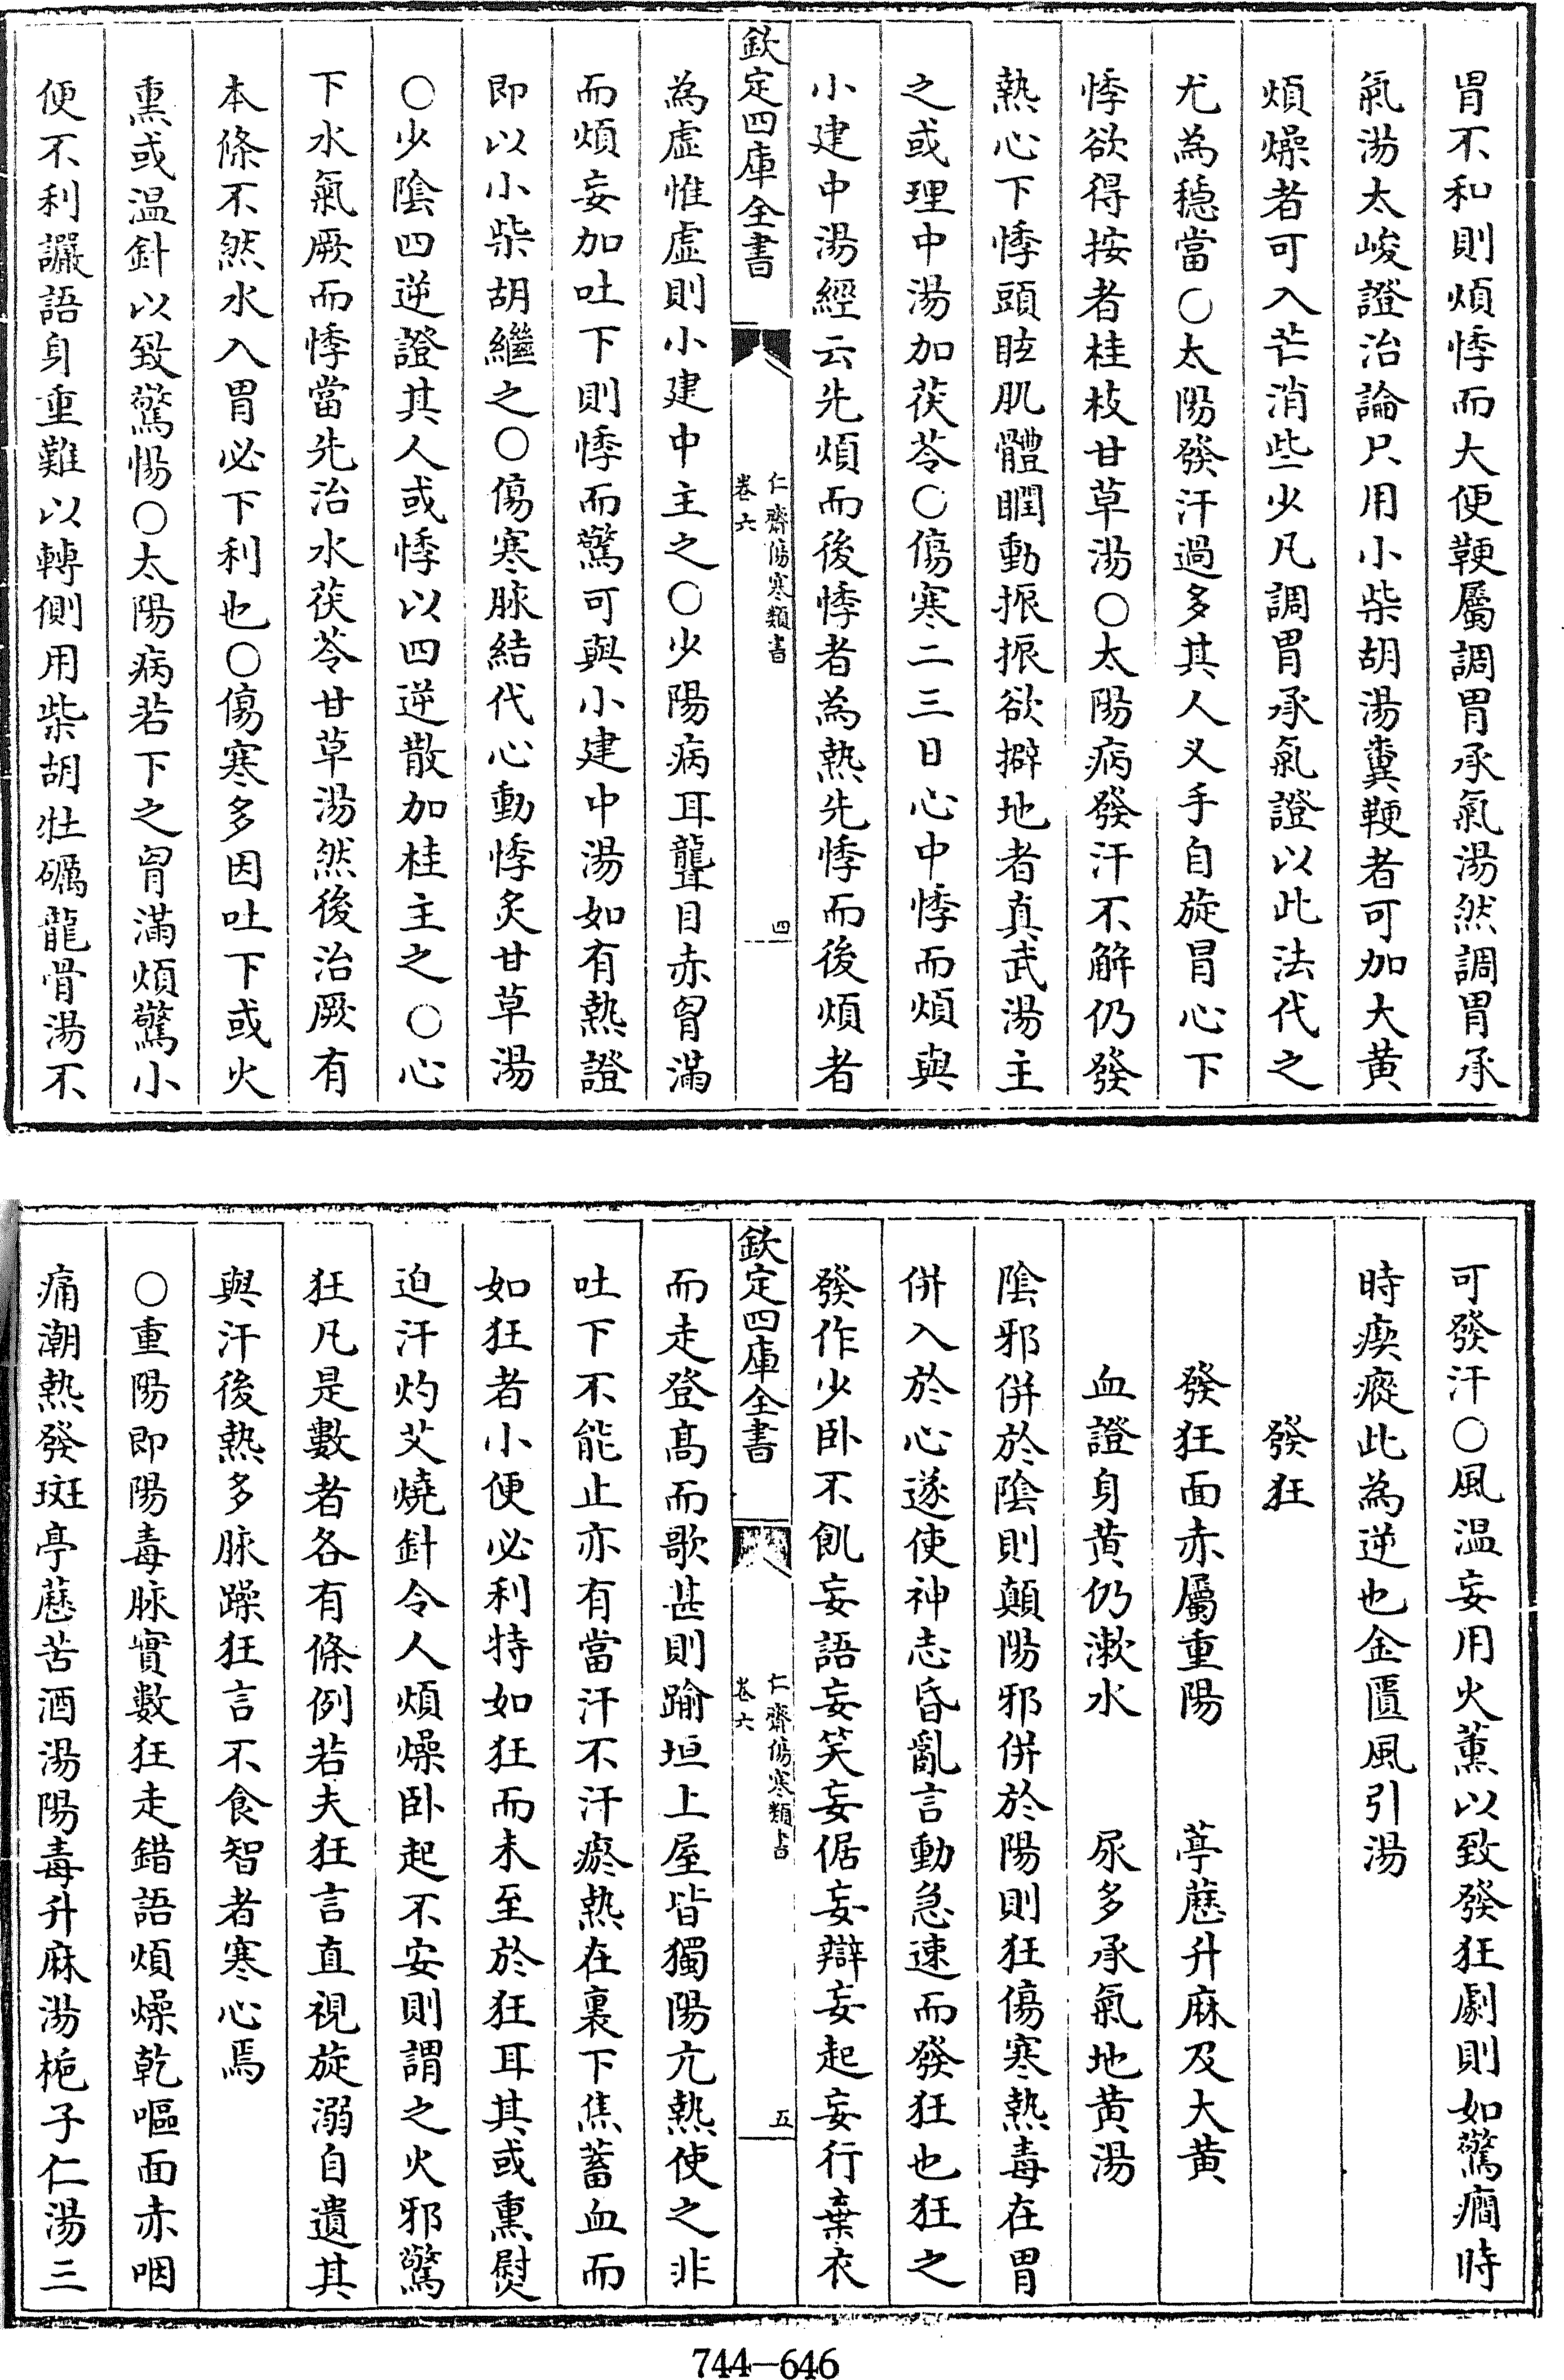 胃不和則煩悸而大便鞕屬調胃承氣湯然調胃承
氣湯太峻證治論只用小柴胡湯糞鞕者可加大黄
煩燥者可入芒消些少凡調胃承氣證以此法代之
尤為穏當○太陽發汗過多其人义手自旋冒心下
悸欲得按者桂枝甘草湯○太陽病發汗不解仍發
熱心下悸頭眩肌體瞤動振振欲擗地者真武湯主
之或理中湯加茯苓○傷寒二三日心中悸而煩與
小建中湯經云先煩而後悸者為熱先悸而後煩者
欽定四庫全書
仁齋傷寒類書
卷六
四
為虚惟虚則小建中主之○少陽病耳聾目赤胷滿
而煩妄加吐下則悸而驚可與小建中湯如有熱證
即以小柴胡繼之○傷寒脉結代心動悸炙甘草湯
○少陰四逆證其人或悸以四逆散加桂主之○心
下水氣厥而悸當先治水茯苓甘草湯然後治厥有
本條不然水入胃必下利也○傷寒多因吐下或火
熏或温針以致驚惕○太陽病若下之胷滿煩驚小
便不利讝語身重難以轉側用柴胡牡礪龍骨湯不
可發汗○風温妄用火薰以致發狂劇則如驚癇時
時瘈瘲此為逆也金匱風引湯
發狂
發狂面赤屬重陽 葶藶升麻及大黄
血證身黄仍漱水 尿多承氣地黄湯
陰邪併於陰則顛陽邪併於陽則狂傷寒熱毒在胃
併入於心遂使神志昏亂言動急速而發狂也狂之
發作少卧不飢妄語妄笑妄倨妄辯妄起妄行棄衣
欽定四庫全書
仁齋傷寒類書
卷六
五
而走登髙而歌甚則踰垣上屋皆獨陽亢熱使之非
吐下不能止亦有當汗不汗瘀熱在裏下焦蓄血而
如狂者小便必利特如狂而未至於狂耳其或熏熨
迫汗灼艾燒針令人煩燥卧起不安則謂之火邪驚
狂凡是數者各有條例若夫狂言直視旋溺自遺其
與汗後熱多脉躁狂言不食智者寒心焉
○重陽即陽毒脉實數狂走錯語煩燥乾嘔面赤咽
痛潮熱發斑亭藶苦酒湯陽毒升麻湯梔子仁湯三
744—646